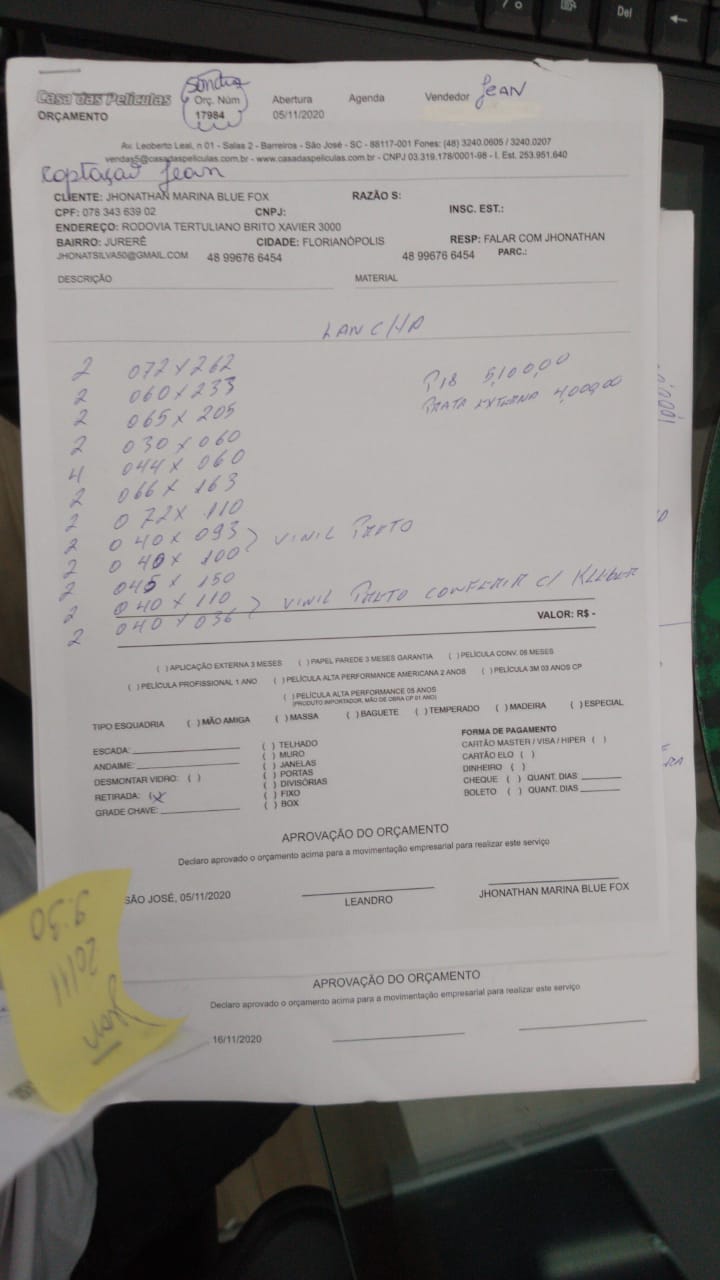 Del
Casa das Películas
ORÇAMENTO
Sandra
Orç. Núm
17984
Abertura
05/11/2020
Agenda
Vendedor JEAN
Av. Leoberto Leal, n 01 - Salas 2 - Barreiros - São José - SC - 88117-001 Fones: (48) 3240.0605 / 3240.0207
vendas5@casadaspeliculas.com.br - www.casadaspeliculas.com.br - CNPJ 03.319.178/0001-98 - I. Est. 253.951.640
Captação Jean
CLIENTE: JHONATHAN MARINA BLUE FOX RAZÃO S:
CPF: 078 343 639 02 CNPJ: INSC. EST.:
ENDEREÇO: RODOVIA TERTULIANO BRITO XAVIER 3000
BAIRRO: JURERÊ CIDADE: FLORIANÓPOLIS RESP: FALAR COM JHONATHAN
JHONATSILVA50@GMAIL.COM 48 99676 6454 48 99676 6454 PARC.:
DESCRIÇÃO MATERIAL
LANCHA
2 072 x 262
2 060 x 233
2 065 x 205
2 030 x 060
4 044 x 060
2 066 x 163
2 072 x 110
2 040 x 093
2 040 x 100 } VINIL PRETO
2 045 x 150
2 040 x 110
2 040 x 036 } VINIL PRETO CONFERIR C/ KLEBER
P18 5,100,00
PRATA EXTERNO 4,000,00
VALOR: R$ -
( ) APLICAÇÃO EXTERNA 3 MESES ( ) PAPEL PAREDE 3 MESES GARANTIA ( ) PELÍCULA CONV. 06 MESES
( ) PELÍCULA PROFISSIONAL 1 ANO ( ) PELÍCULA ALTA PERFORMANCE AMERICANA 2 ANOS ( ) PELÍCULA 3M 03 ANOS CP
( ) PELÍCULA ALTA PERFORMANCE 05 ANOS
(PRODUTO IMPORTADOR, MÃO DE OBRA CP 01 ANO)
TIPO ESQUADRIA ( ) MÃO AMIGA ( ) MASSA ( ) BAGUETE ( ) TEMPERADO ( ) MADEIRA ( ) ESPECIAL
ESCADA:
ANDAIME:
DESMONTAR VIDRO: ( )
RETIRADA: (X)
GRADE CHAVE:
( ) TELHADO
( ) MURO
( ) JANELAS
( ) PORTAS
( ) DIVISÓRIAS
( ) FIXO
( ) BOX
FORMA DE PAGAMENTO
CARTÃO MASTER / VISA / HIPER ( )
CARTÃO ELO ( )
DINHEIRO ( )
CHEQUE ( ) QUANT. DIAS
BOLETO ( ) QUANT. DIAS
APROVAÇÃO DO ORÇAMENTO
Declaro aprovado o orçamento acima para a movimentação empresarial para realizar este serviço
SÃO JOSÉ, 05/11/2020
LEANDRO
JHONATHAN MARINA BLUE FOX
APROVAÇÃO DO ORÇAMENTO
Declaro aprovado o orçamento acima para a movimentação empresarial para realizar este serviço
16/11/2020
Jhon
20/11
9:30